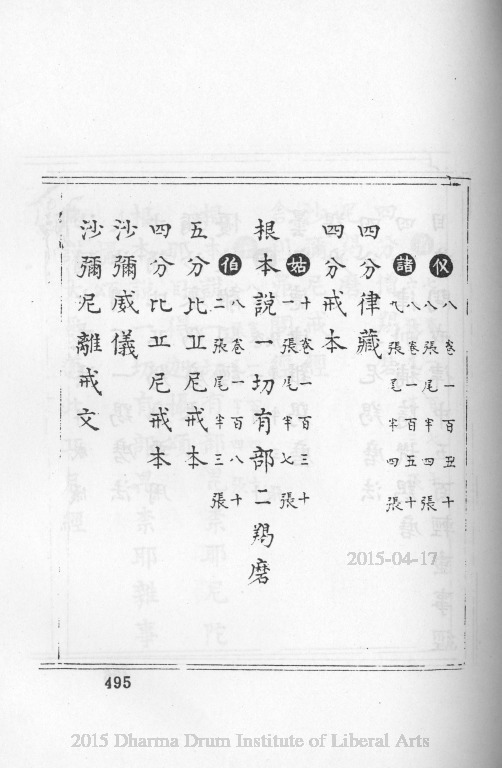 仪
八卷一百五十
八張尾半四張
諸
八卷一百五十
九張尾半四張
四分律藏
四分戒本
姑
十卷一百三十
一張尾半七張
根本說一切有部二羯磨
伯
八卷一百八十
二張尾半三張
五分比丘尼戒本
四分比丘尼戒本
沙彌威儀
沙彌尼離戒文
495
2015-04-17
2015 Dharma Drum Institute of Liberal Arts